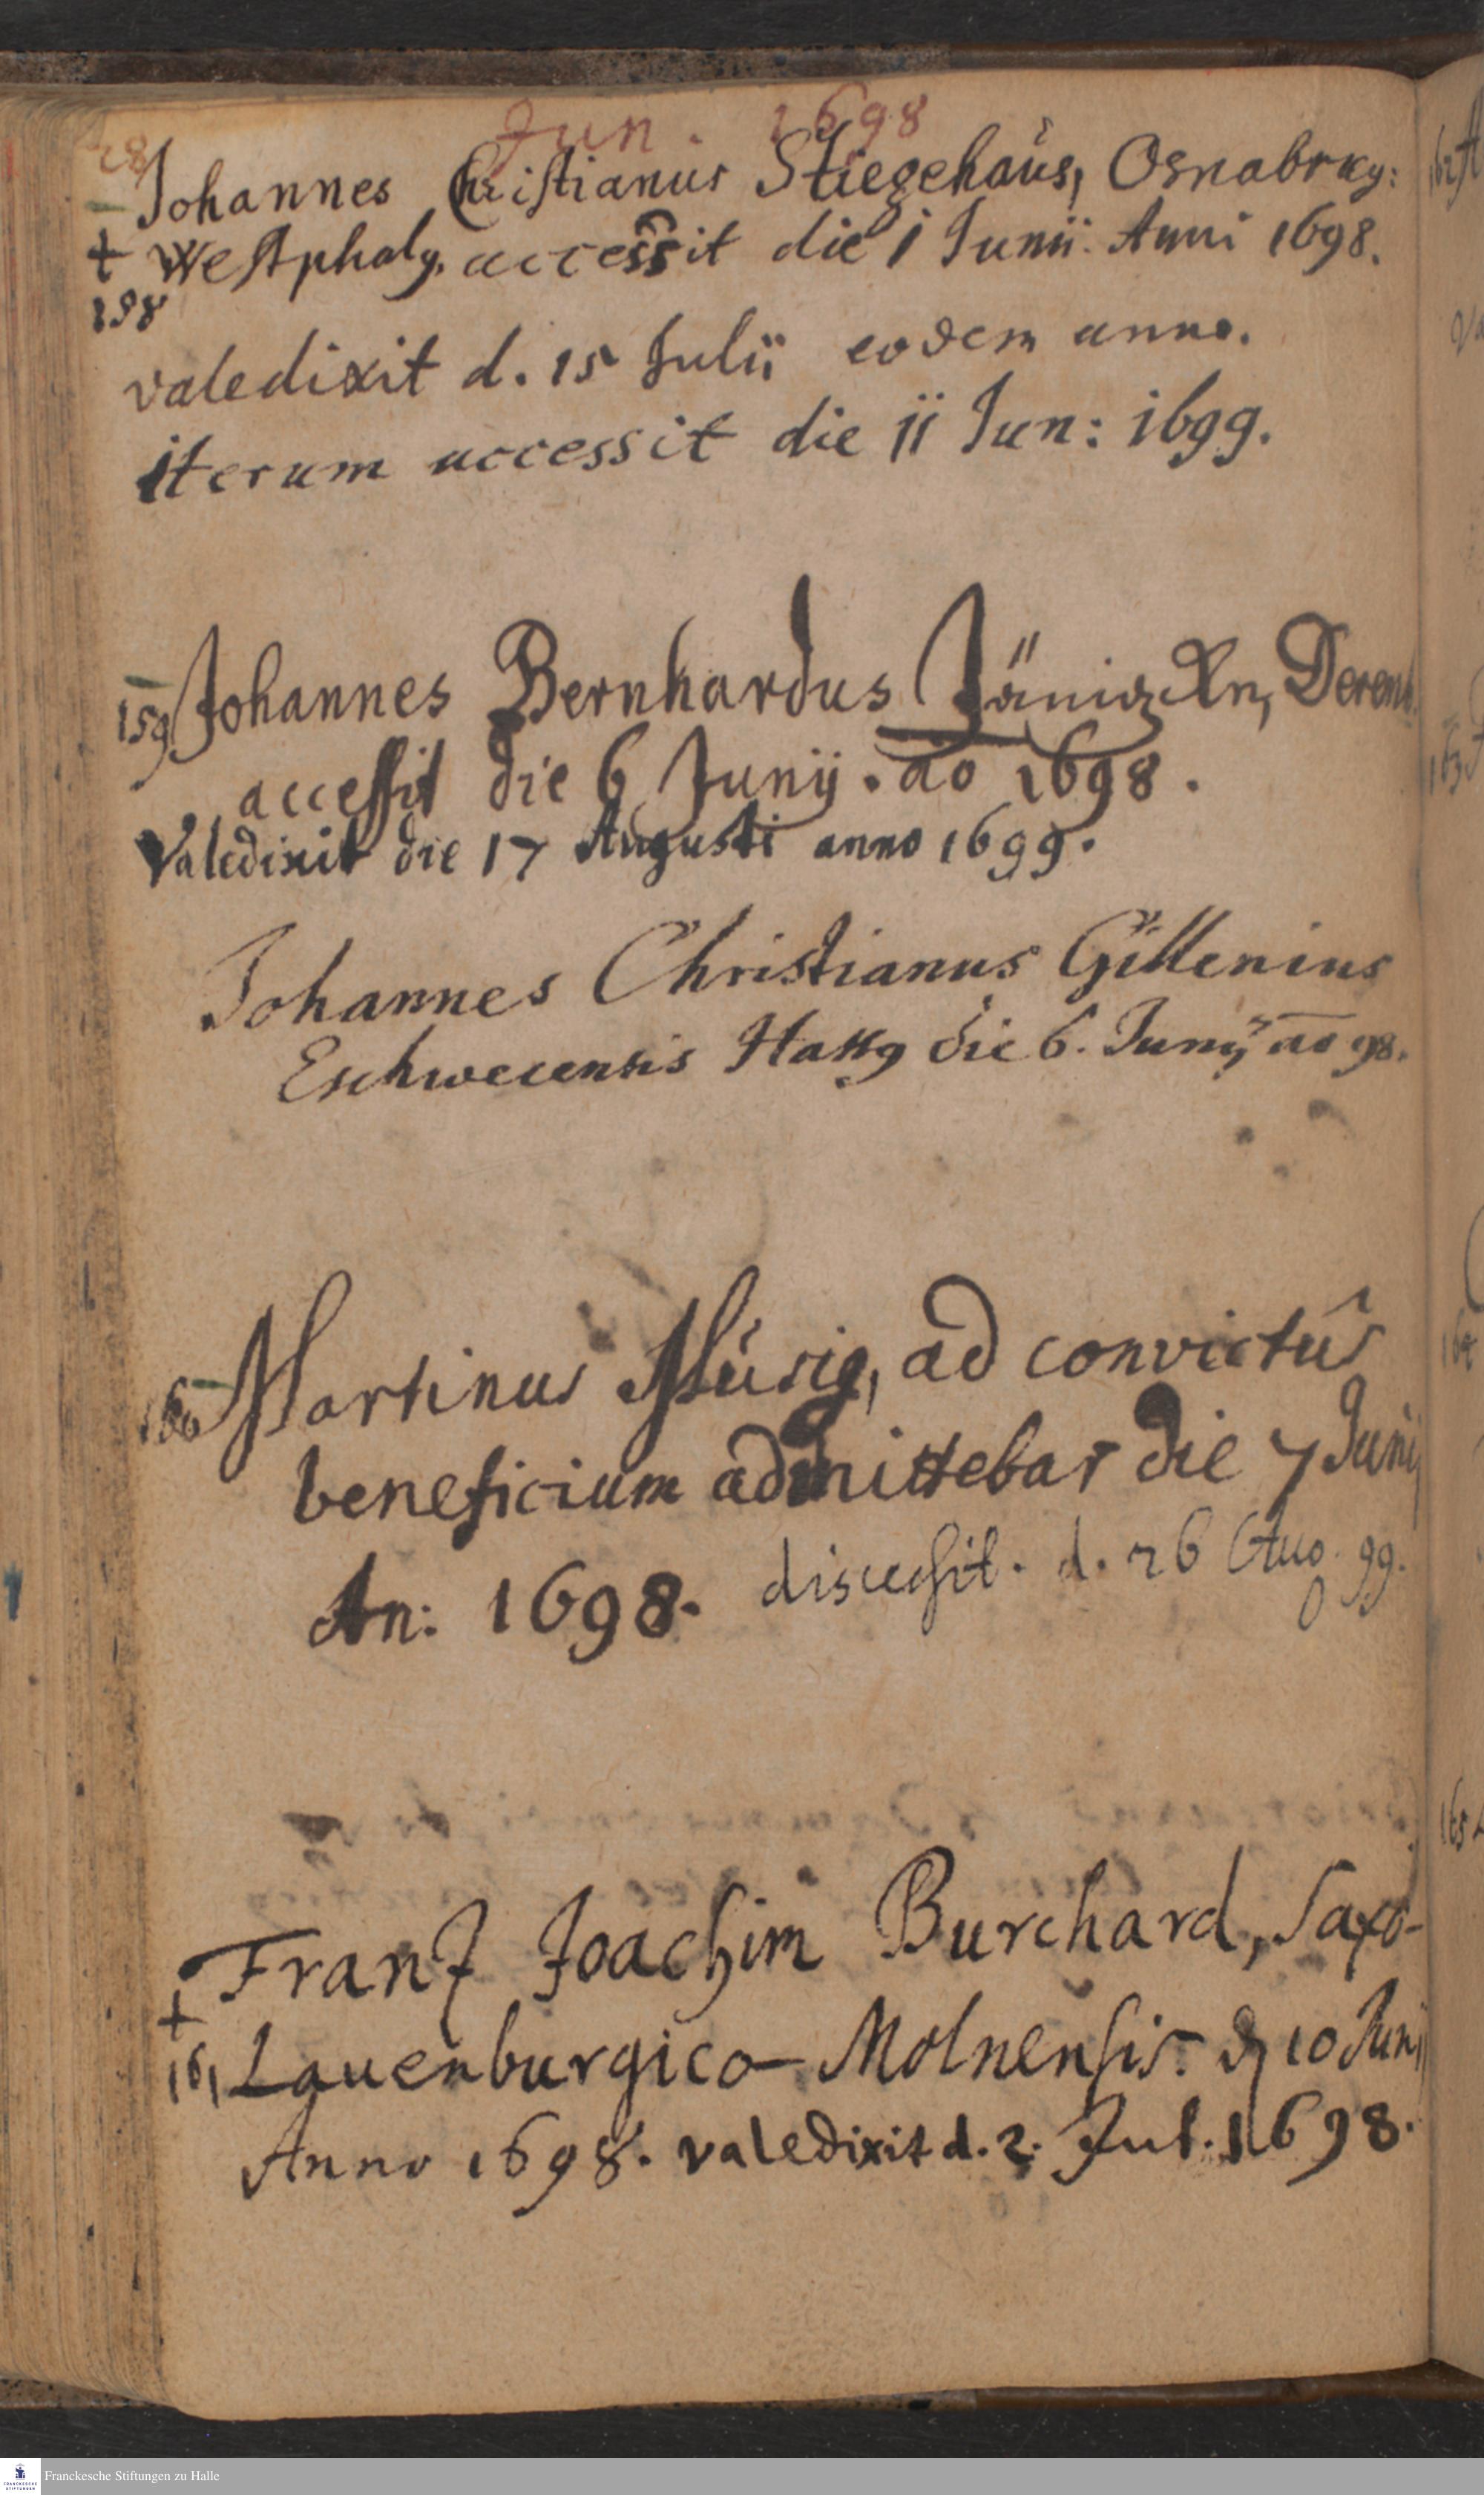 Jun. 1698
28
Johannes Christianus Stiegehaus, Osnabrug:
+ Westphalg. accessit die 1 Junii. Anni 1698.
158
valedixit d. 15 Julii eodem anno.
iterum accessit die 11 Jun: 1699.
159 Johannes Bernhardus Jänick
accessit die 6 Junij. ao 1698.
Valedixit die 17 Augusti anno 1699.
Johannes Christianus Gillenius
Eschwecensis Hass9 die 6. Junij ao 98.
160 Martinus Müsig, ad convictus
beneficium admittebar die 7 Junij
An: 1698. discessit. d. 26 Aug. 99.
Frantz Joachim Burchard, Saxo-
+
161 Lauenburgico-Molnensis. d 10 Junij
Anno 1698. valedixit d. 2. Jul. 1698.
162
163
164
165
Franckesche Stiftungen zu Halle